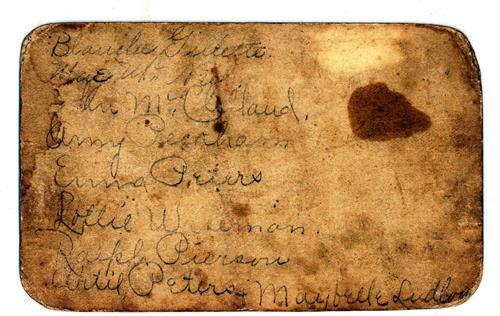 Blanche Gillette
Mc Clelland.
Amy Peckham
Emma Peters
Lottie Wiseman.
Ralph Pierson
Peters & Maybelle Ludlow